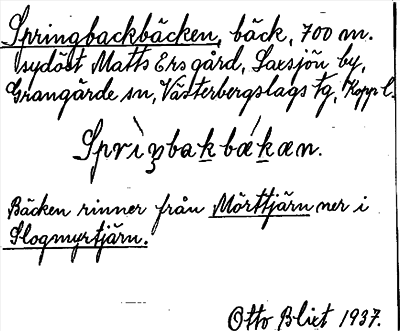 Springbackbäcken, bäck, 700 m.
sydöst Matts Ers gård, Saxsjön by,
Grangärde sn, Västerbergslags tg, Kopp l.
Sprìŋbakbǽkæn.
Bäcken rinner från Mörttjärn ner i
Slogmyrtjärn.
Otto Blixt 1937.